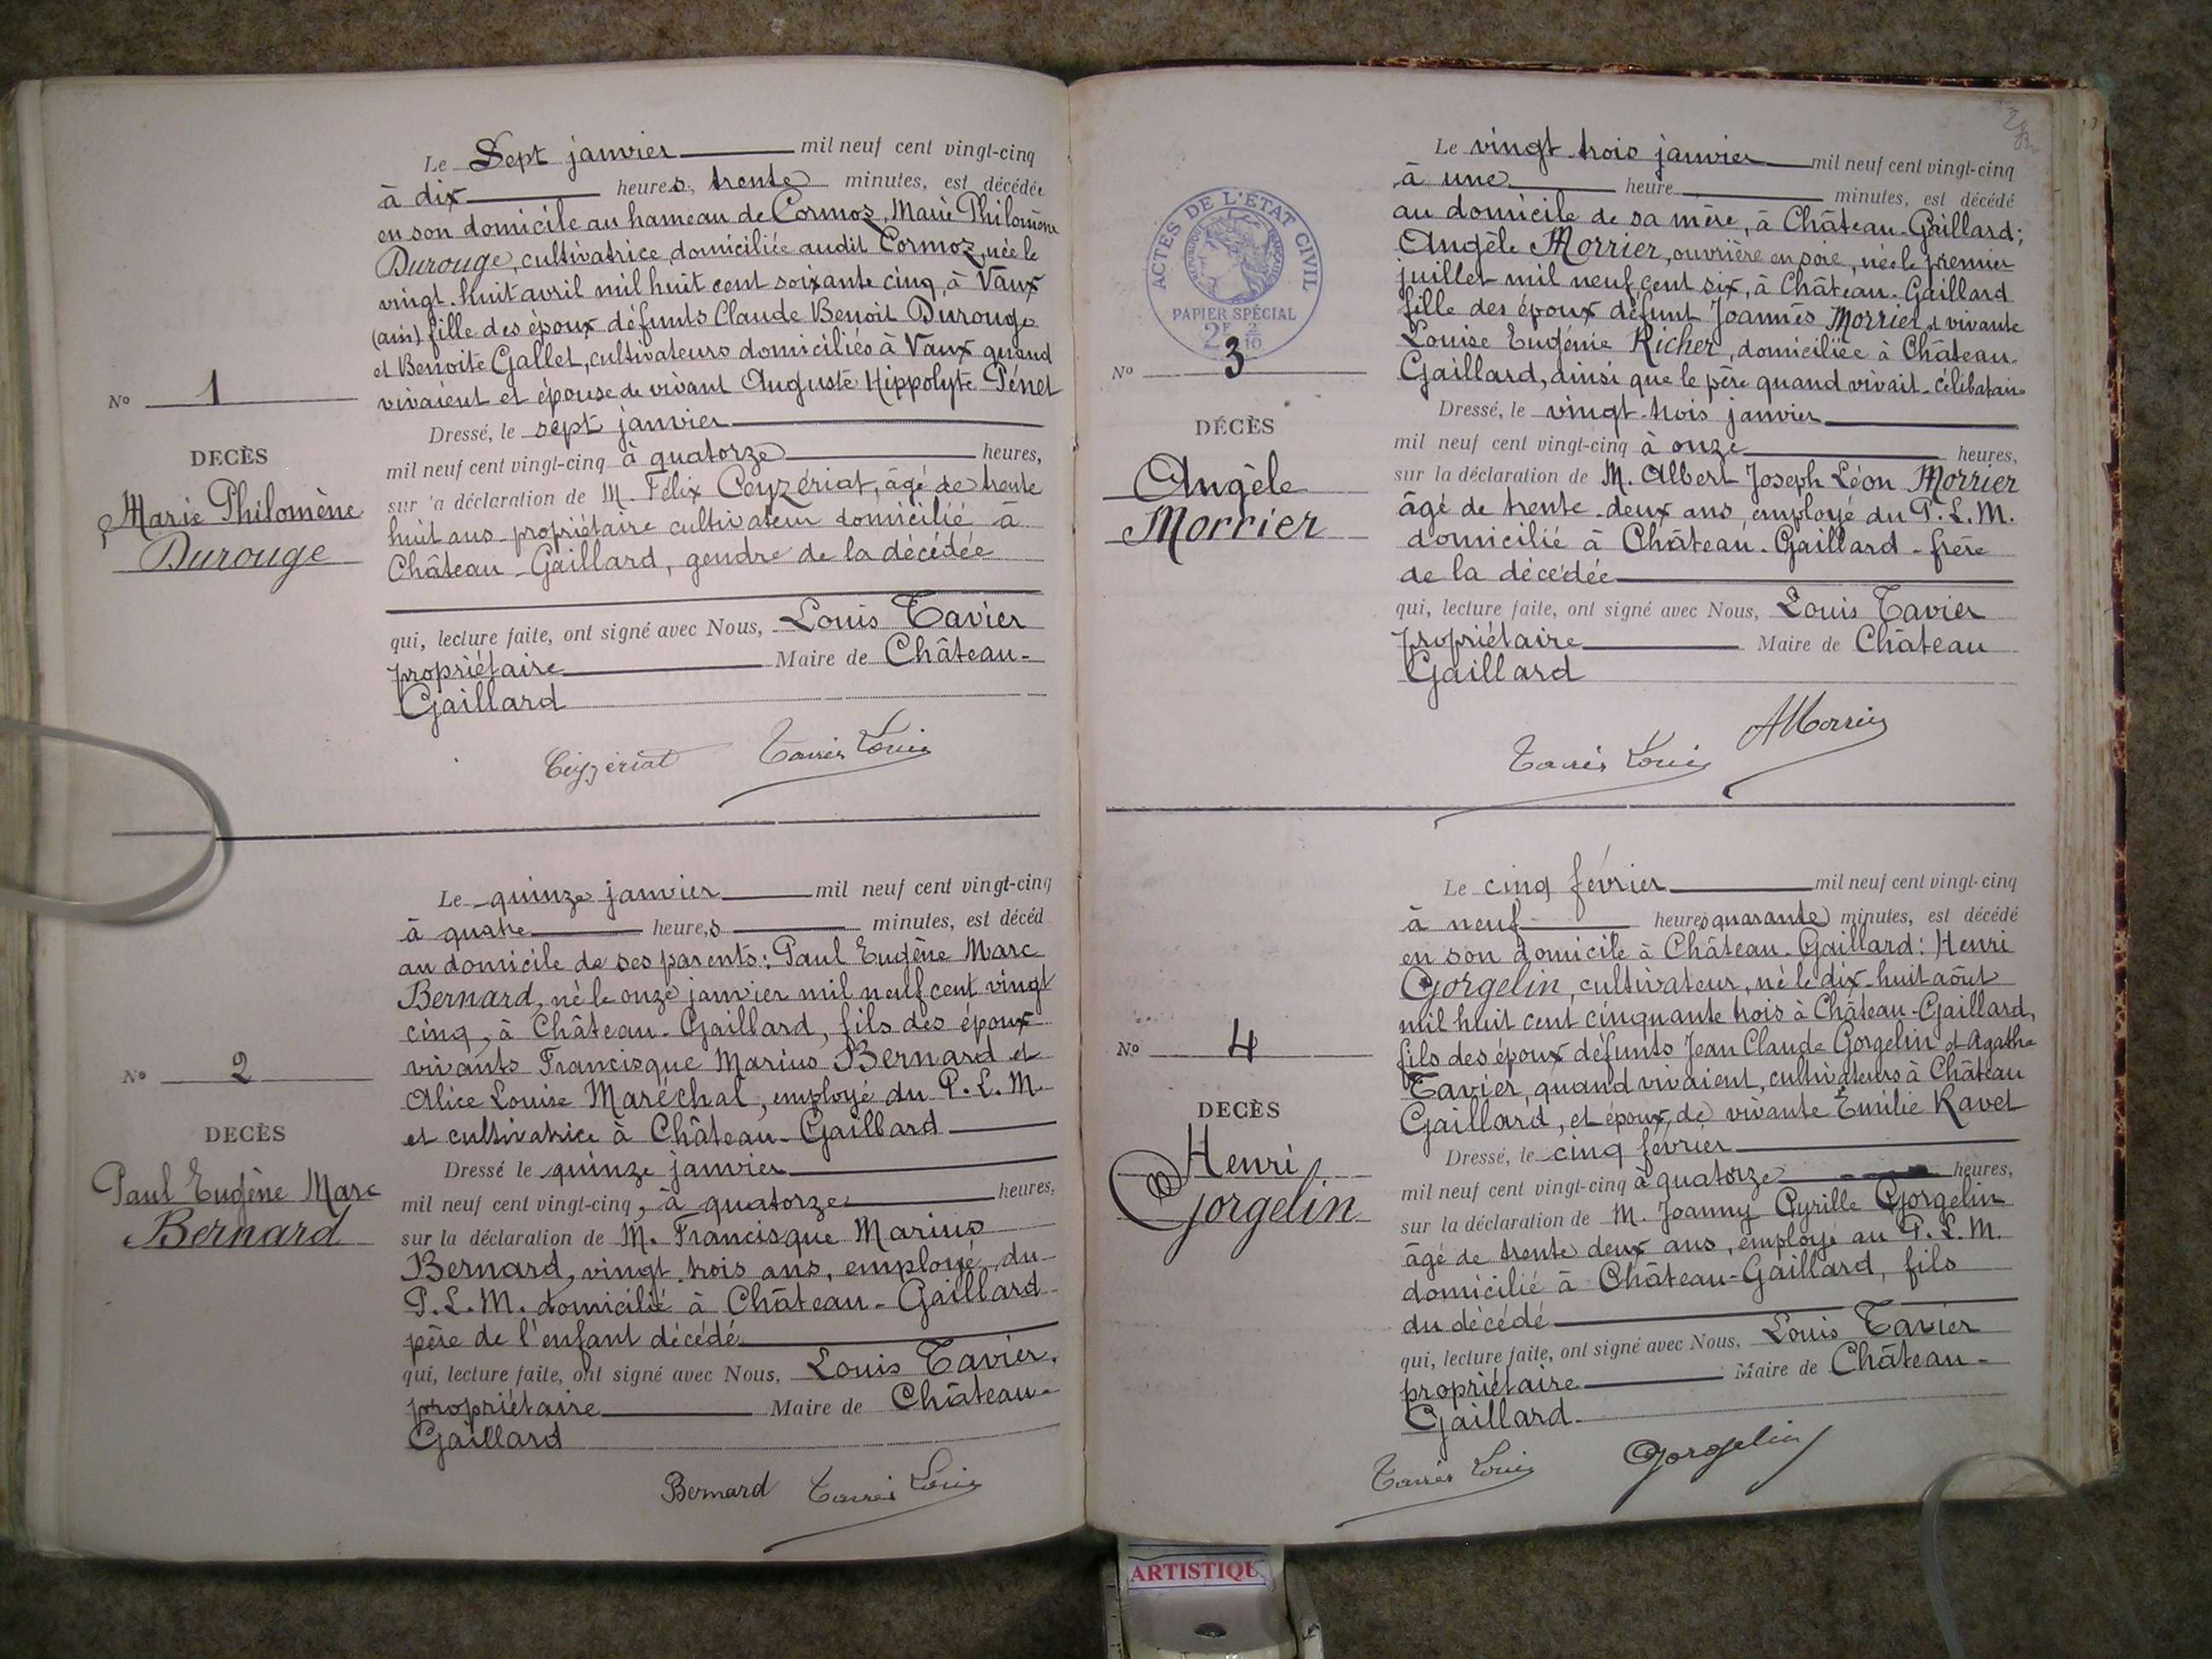 Le Sept janvier mil neuf cent vingt-cinq
à dix heures, trente minutes, est décédée
en son domicile au hameau de Cormoz, Marie Philomène
Durouge, cultivatrice, domiciliée audit Cormoz, née le
vingt-huit avril mil huit cent soixante cinq, à Vaux
(ain) fille des époux défunts Claude Benoit Durouge
et Benoite Gallet, cultivateurs domiciliés à Vaux quand
vivaient et épouse de vivant Auguste Hippolyte Pénet
No 1
DECÈS
Marie Philomène
Durouge
Dressé, le sept janvier
mil neuf cent vingt-cinq à quatorze heures,
sur 'a déclaration de M. Félix Ceyzériat, âgé de trente
huit ans propriétaire cultivateur domicilié à
Château-Gaillard, gendre de la décédée
qui, lecture faite, ont signé avec Nous, Louis Tavier
propriétaire Maire de Château-
Gaillard
Ceyzériat Tavier Louis
Le quinze janvier mil neuf cent vingt-cinq
à quatre heure,s minutes, est décéd
au domicile de ses parents: Paul Eugène Marc
Bernard, né le onze janvier mil neuf cent vingt
cinq, à Château-Gaillard, fils des époux
vivants Francisque Marius Bernard et
Alice Louise Maréchal, employé du P.L.M.
et cultivatrice à Château-Gaillard
No 2
DECÈS
Paul Eugène Marc
Bernard
Dressé le quinze janvier
mil neuf cent vingt-cinq, à quatorze heures,
sur la déclaration de M. Francisque Marius
Bernard, vingt trois ans, employé du
P.L.M. domicilié à Château-Gaillard
père de l'enfant décédé
qui, lecture faite, ont signé avec Nous, Louis Tavier,
propriétaire Maire de Château-
Gaillard
Bernard Tavier Louis
Le vingt trois janvier mil neuf cent vingt-cinq
à une heure minutes, est décédé
au domicile de sa mère, à Château-Gaillard;
Angèle Morrier, ouvrière en soie, née le premier
juillet mil neuf cent six, à Château-Gaillard
fille des époux défunt Joannès Morrier et vivante
Louise Eugénie Richer, domiciliée à Château-
Gaillard, ainsi que le père quand vivait-célibataire
ACTES DE L'ETAT CIVIL
PAPIER SPÉCIAL
2F 2/10
No 3
DÉCÈS
Angèle
Morrier
Dressé, le vingt-trois janvier
mil neuf cent vingt-cinq à onze heures,
sur la déclaration de M. Albert Joseph Léon Morrier
âgé de trente-deux ans, employé du P.L.M.
domicilié à Château-Gaillard-frère
de la décédée
qui, lecture faite, ont signé avec Nous, Louis Tavier
propriétaire Maire de Château
Gaillard
Tavier Louis AMorrier
Le cinq février mil neuf cent vingt-cinq
à neuf heures quarante minutes, est décédé
en son domicile à Château-Gaillard: Henri
Gorgelin, cultivateur, né le dix-huit août
mil huit cent cinquante trois à Château-Gaillard,
fils des époux défunts Jean Claude Gorgelin et Agathe
Tavier, quand vivaient, cultivateurs à Château
Gaillard, et époux, de vivante Emilie Ravet
No 4
DECÈS
Henri
Gorgelin
Dressé, le cinq février
mil neuf cent vingt-cinq à quatorze heures,
sur la déclaration de M. Joanny Cyrille Gorgelin
âgé de trente deux ans, employé au P.L.M.
domicilié à Château-Gaillard, fils
du décédé
qui, lecture faite, ont signé avec Nous, Louis Tavier
propriétaire Maire de Château-
Gaillard
Tavier Louis Gorgelin
ARTISTIQU